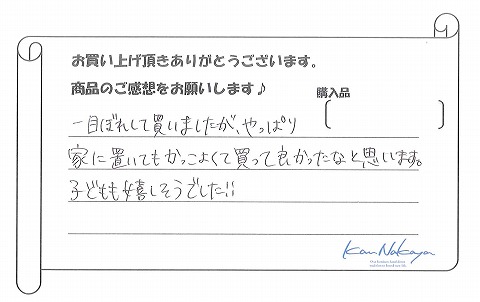 お買い上げ頂きありがとうございます。
商品のご感想をお願いします♪
購入品
一目ぼれして買いましたが、やっぱり
家に置いてもかっこよくて買って良かったなと思います。
子どもも嬉しそうでした!!
Kan Nakaya